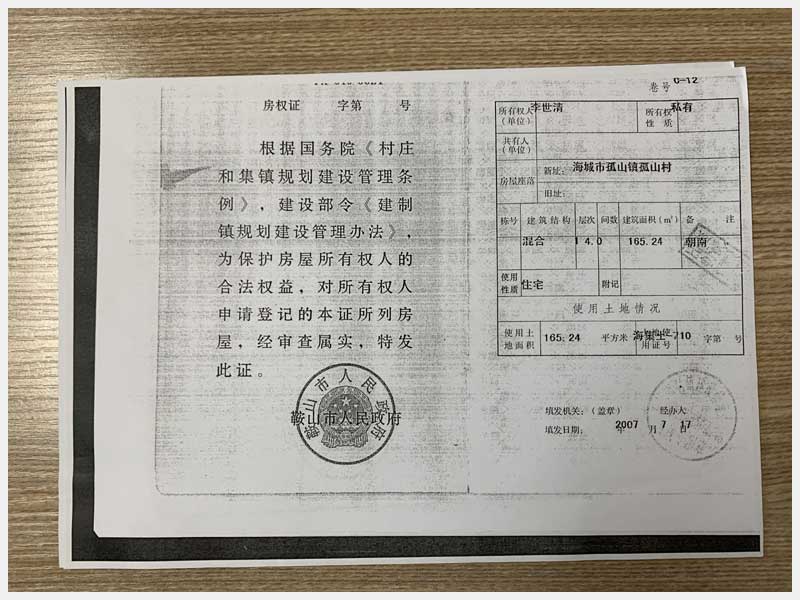 房权证 字第 号
根据国务院《村庄
和集镇规划建设管理条
例》，建设部令《建制
镇规划建设管理办法》，
为保护房屋所有权人的
合法权益，对所有权人
申请登记的本证所列房
屋，经审查属实，特发
此证。
鞍山市人民政府
鞍山市人民政府
卷号 6-12
所有权人（单位） 李世清 所有权性质 私有
共有人（单位）
房屋座落 新址： 海城市孤山镇孤山村
旧址：
栋号 建筑结构 层次 间数 建筑面积（㎡） 备注
混合 1 4.0 165.24 朝南
使用性质 住宅 附记
使用土地情况
使用土地面积 165.24 平方米 土地使用证号 海集土-710 字第 号
填发机关：（盖章） 经办人
填发日期： 2007 年 7 月 17 日